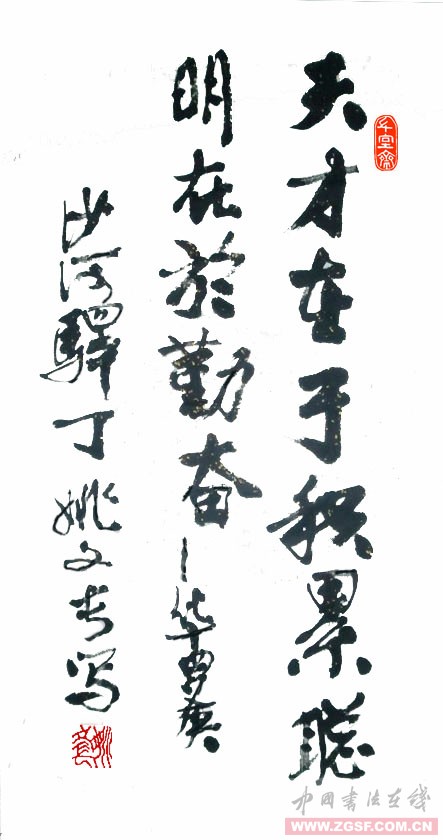 天才在于积累聪
明在於勤奋—华罗庚
沙河驛丁 姚文写
中国書法在线
WWW.ZGSF.COM.CN